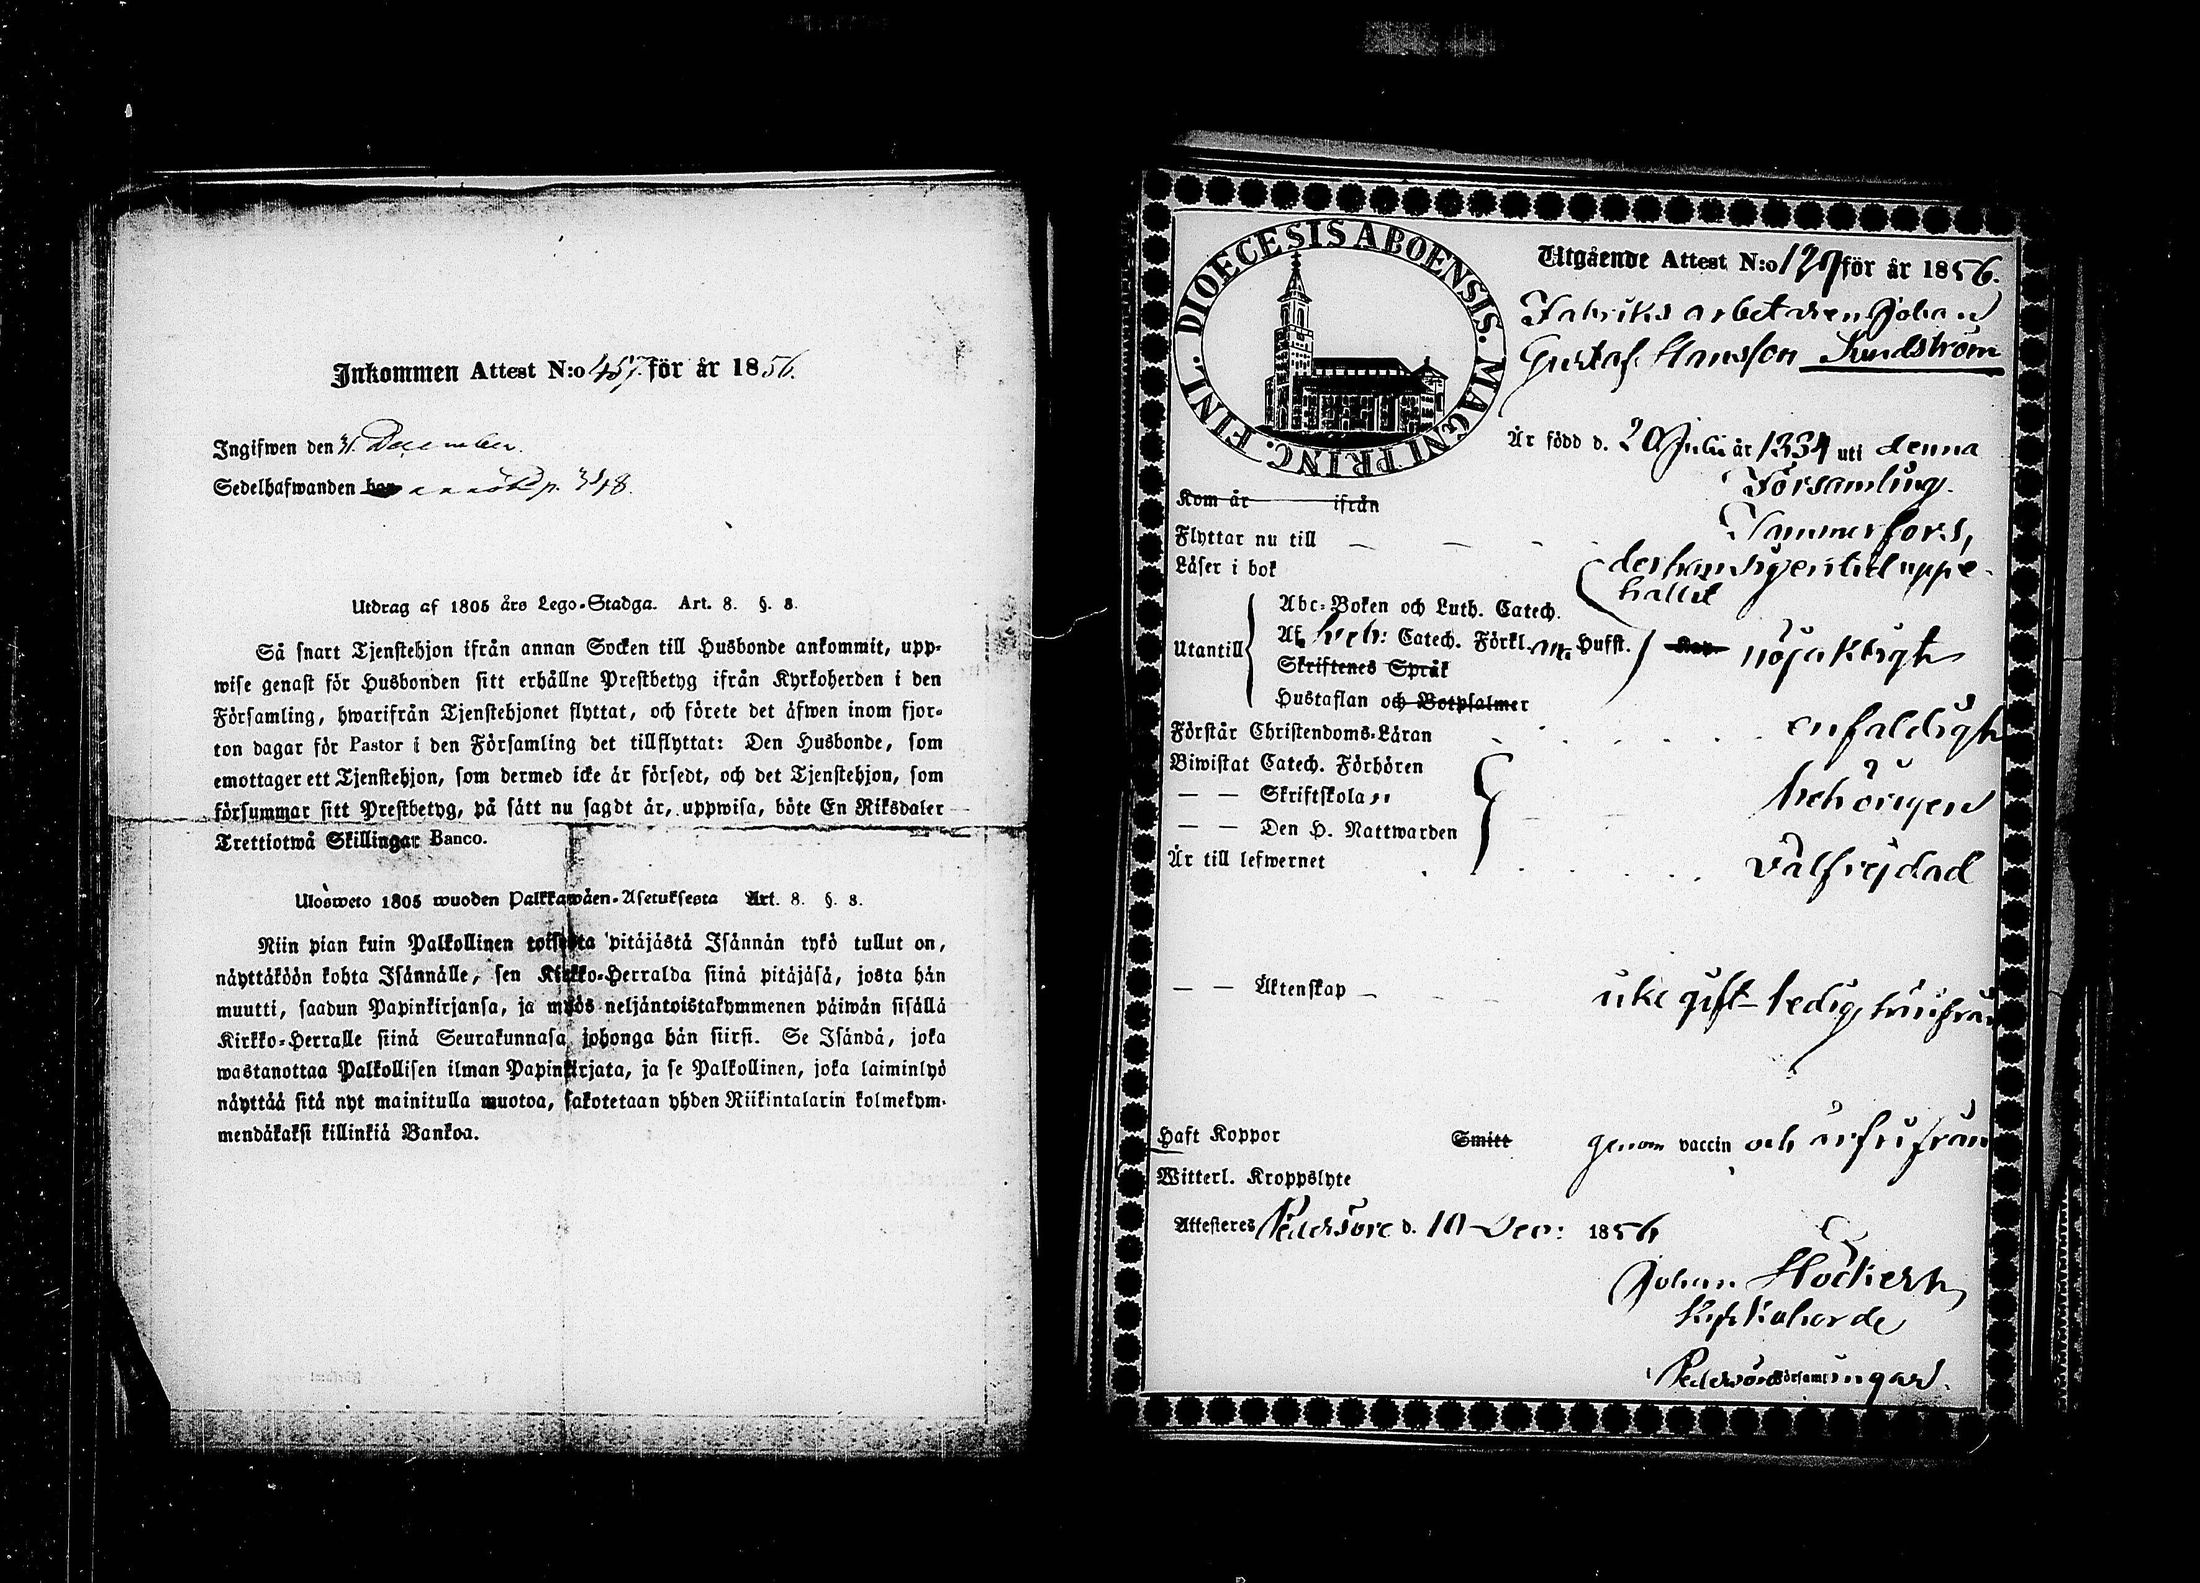 Inkommen Attest N:o 457 för år 1856.
Ingifwen den 31 December.
Sedelhafwanden p. 348.
Utdrag af 1805 års Lego-Stadga. Art. 8. §. 8.
Så snart Tjenstehjon ifrån annan Socken till Husbonde ankommit, upp-
wise genast för Husbonden sitt erhållne Prestbetyg ifrån Kyrkoherden i den
Församling, hwarifrån Tjenstehjonet flyttat, och förete det äfwen inom fjor-
ton dagar för Pastor i den Församling det tillflyttat: Den Husbonde, som
emottager ett Tjenstehjon, som dermed icke är försedt, och det Tjenstehjon, som
försummar sitt Prestbetyg, på sätt nu sagdt är, uppwisa, böte En Riksdaler
Trettiotwå Skillingar Banco.
Ulosweto 1805 wuoden Palkkawäen-Asetuksesta Art. 8. §. 8.
Niin pian kuin Palkollinen toisesta pitäjästä Isännän tykö tullut on,
näyttäköön kohta Isännälle, sen Kirkko-Herralda siinä pitäjäsä, josta hän
muutti, saadun Papinkirjansa, ja myös neljäntoistakymmenen päiwän sisällä
Kirkko-Herralle siinä Seurakunnasa johonga hän siirsi. Se Isändä, joka
wastanottaa Palkollisen ilman Papinkirjata, ja se Palkollinen, joka laiminlyö
näyttää sitä nyt mainitulla muotoa, sakotetaan yhden Riikintalarin kolmekym-
mendäkaksi killinkiä Bankoa.
DIOECESIS ABOENSIS. MAGNI PRINC. FINL.
Utgående Attest N:o 129 för år 1856.
Fabriks arbetaren Johan
Gustaf Hansson Sundström
Är född d. 20 Juli år 1834 uti denna
Församling.
Kom år ifrån
Flyttar nu till Tammerfors,
Läser i bok der han sig en tid uppe-
hållit
Abc-Boken och Luth. Catech.
Utantill Af Catech. Förkl. m. Hufst. nöjaktigt
Skriftenes Språk
Hustaflan och Botpsalmer
Förstår Christendoms-Läran enfaldigt
Biwistat Catech. Förhören
— — Skriftskolan behörigen
— — Den H. Nattwarden
Är till lefwernet välfrejdad
— — Äktenskap icke gift — ledig härifrån
Haft Koppor Smitt genom vaccin och är fri från
Witterl. Kroppslyte
Attesteres Pedersöre d. 10 Dec: 1856
Johan Höckert
Kyrkoherde
Pedersöre Församlingar.